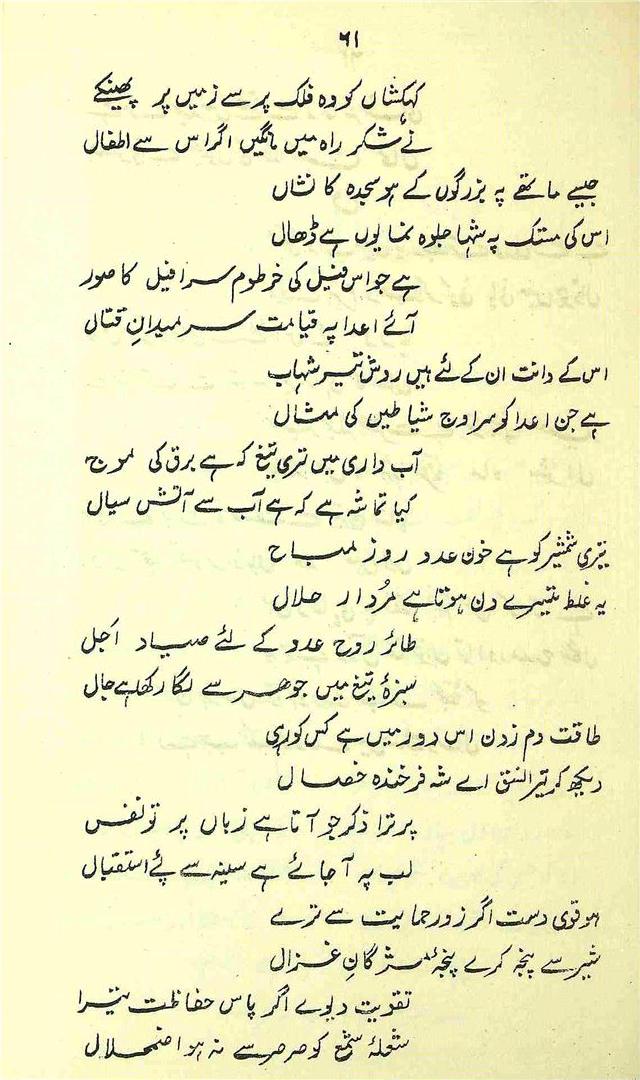 ۶۱
کہکشاں کو وہ فلک پر سے زمیں پر پھینکے
نے شکر راہ میں مانگیں اگر اس سے اطفال
جیسے ماتھے پہ بزرگوں کے ہو سجدہ کا نشاں
اس کی مستک پہ شہا جلوہ نما یوں ہے ڈھال
ہے جو اس فیل کی خرطوم سرافیل کا صور
آئے اعدا پہ قیامت سر میدانِ قتال
اس کے دانت ان کے لئے ہیں روش تیر شہاب
ہے جن اعدا کو سر اوج شیاطیں کی مثال
آب داری میں تری تیغ کہ ہے برق کی موج
کیا تماشہ ہے کہ ہے آب سے آتش سیال
تیری شمشیر کو ہے خون عدو روز مباح
یہ غلط تیرے دن ہوتا ہے مُردار حلال
طائر روح عدو کے لئے صیاد اجل
سبزۂ تیغ میں جوہر سے لگا رکھا ہے جال
طاقت دم زدن اس دور میں ہے کس کو ری
دیکھ کر تیرا نسق اے شہ فرخندہ خصال
پر ترا ذکر جو آتا ہے زباں پر تو نفس
لب پہ آ جائے ہے سینہ سے پئے استقبال
ہو قوی دست اگر زور حمایت سے ترے
شیر سے پنجہ کرے پنجۂ مژگانِ غزال
تقویت دیوے اگر پاس حفاظت تیرا
شعلۂ شمع کو صرصر سے نہ ہو اضمحلال